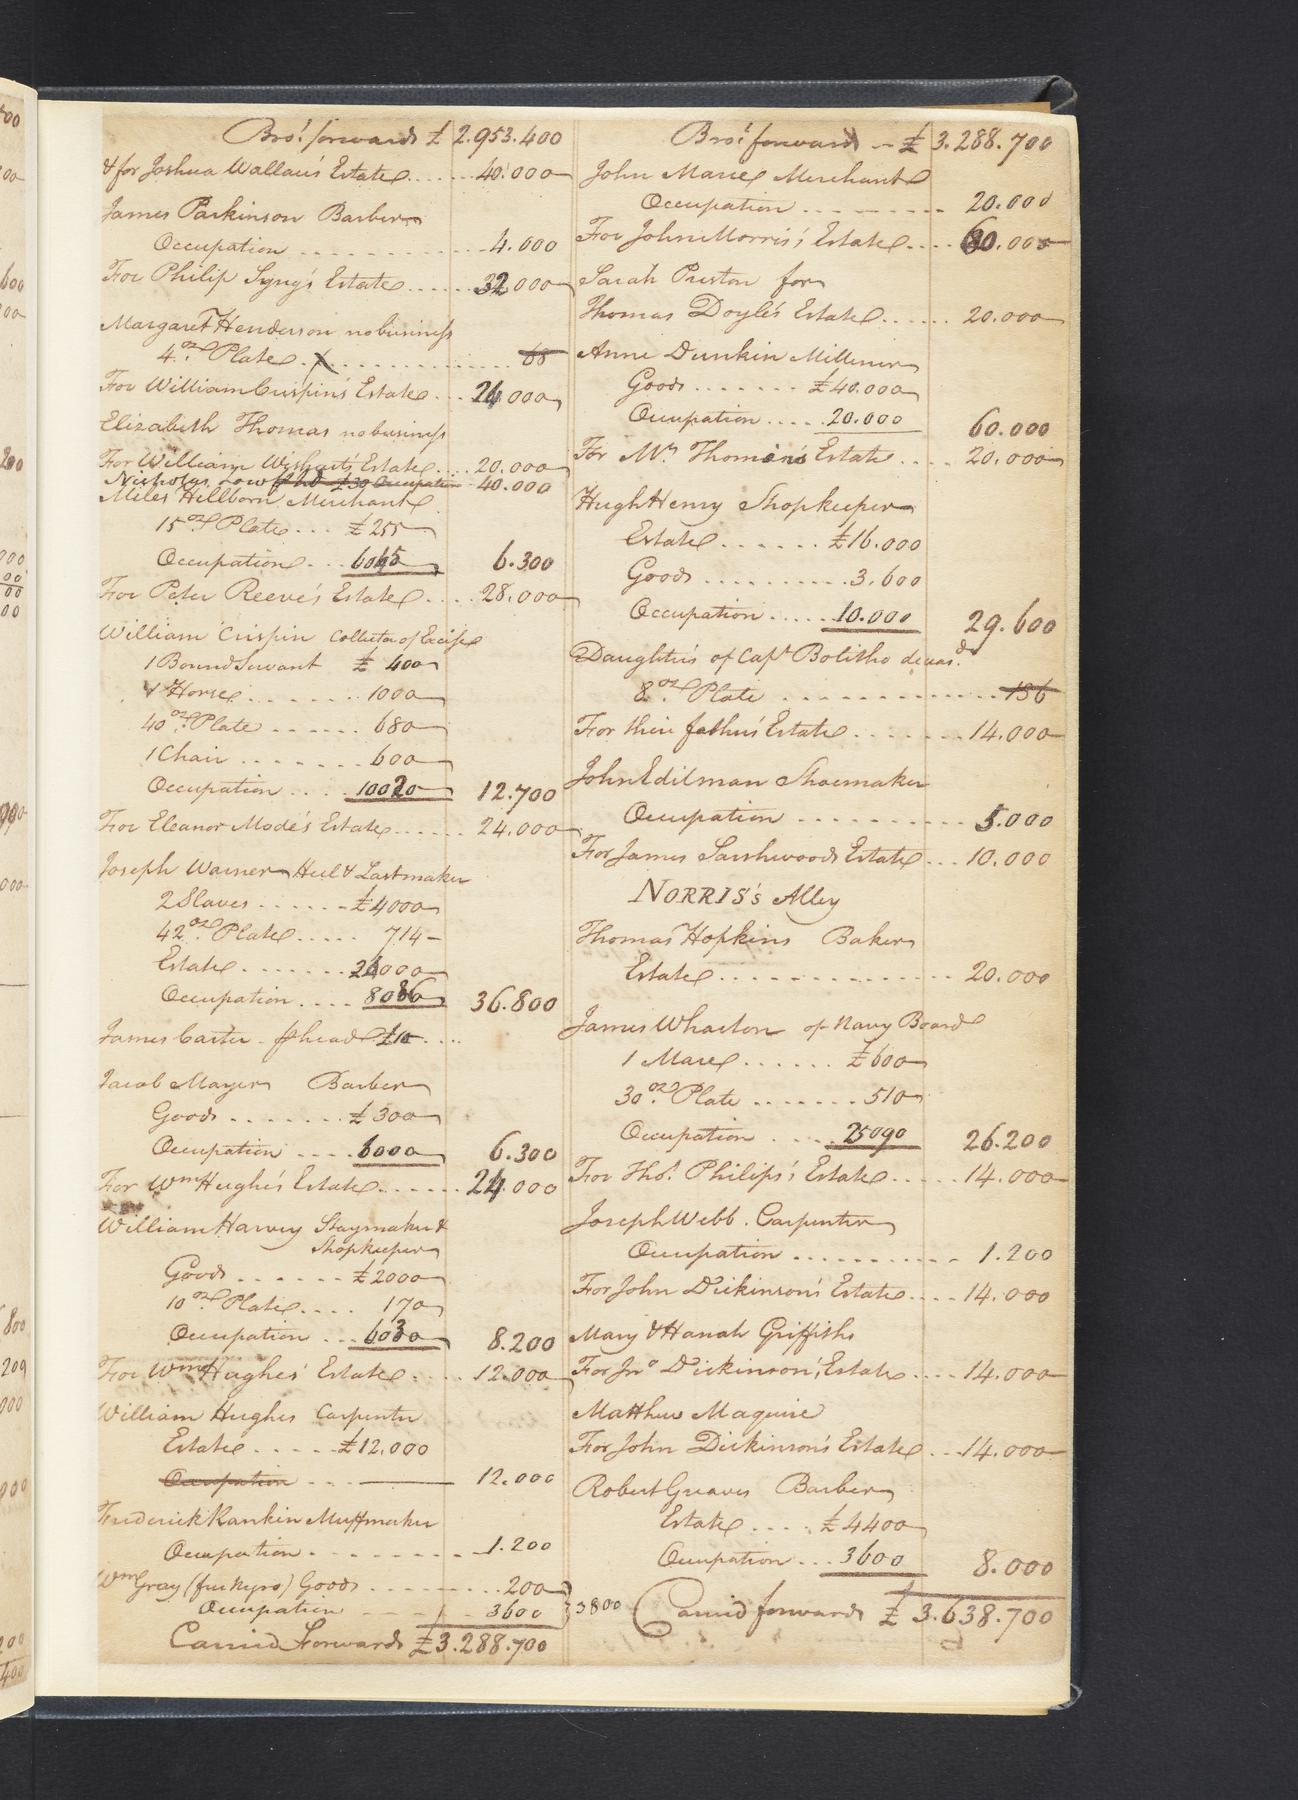 Bro.t forwards £ 2.953.400
& for Joshua Wallace's Estate..... 40.000
James Parkinson Barber
Occupation ........... 4.000
For Philip Syng's Estate...... 32.000
Margaret Henderson no business
4 oz. Plate ........... 68
For William Crispin's Estate... 24.000
Elizabeth Thomas no business
For William Wishart's Estate.... 20.000
Nicholas Low p hd £30 Occupation 40.000
Miles Hillborn Merchant
15 oz. Plate... £255
Occupation .. 6045 6.300
For Peter Reeve's Estate.... 28.000
William Crispin Collector of Excise
1 Bound Servant £ 400
1 Horse....... 1000
40 oz. Plate ...... 680
1 Chair ....... 600
Occupation .... 10020 12.700
For Eleanor Mode's Estate...... 24.000
Joseph Warner Heel & Lastmaker
2 Slaves ...... £4000
42 oz. Plate..... 714
Estate....... 24000
Occupation .... 8086 36.800
James Carter p head £10 ....
Jacob Mayer Barber
Goods ....... £300
Occupation .... 6000 6.300
For Wm Hughe's Estate...... 24.000
William Harvey Staymaker &
Shopkeeper
Goods ...... £2000
10 oz. Plate.... 170
Occupation ... 6030 8.200
For Wm Hughes' Estate.... 12.000
William Hughes Carpenter
Estate ..... £12,000
Occupation ... 12.000
Frederick Rankin Muffmaker
Occupation ........ 1.200
Wm Gray (free Negro) Goods ....... 200
Occupation .... 3600 } 3800
Carried Forwards £3.288.700
Bro.t forward £ 3.288.700
John Mariee Merchant
Occupation ........ 20.000
For John Morris's Estate.... 60.000
Sarah Preston for
Thomas Doyle's Estate...... 20.000
Anne Dunkin Milliner
Goods ....... £40.000
Occupation ..... 20.000 60.000
For Mr. Estate .... 20.000
Hugh Henry Shopkeeper
Estate ...... £16.000
Goods .......... 3.600
Occupation ..... 10.000 29.600
Daughters of Capt. Bolitho deceas.d
8 oz. Plate ............ 136
For their father's Estate ....... 14.000
John Edilman Shoemaker
Occupation .......... 5.000
For James Estate... 10.000
NORRIS's Alley
Thomas Hopkins Baker
Estate............. 20.000
James Wharton of Navy Board
1 Mare ...... £600
30 oz. Plate ....... 510
Occupation .... 25090 26.200
For Tho.s Philips's Estate..... 14.000
Joseph Webb Carpenter
Occupation .......... 1.200
For John Dickinson's Estate.... 14.000
Mary & Hanah Griffiths
For Jno Dickinson's Estate.... 14.000
Matthew Maguire
For John Dickinson's Estate... 14.000
Robert Greaves Barber
Estate .... £4400
Occupation ... 3600 8.000
Carried forwards £ 3.638.700